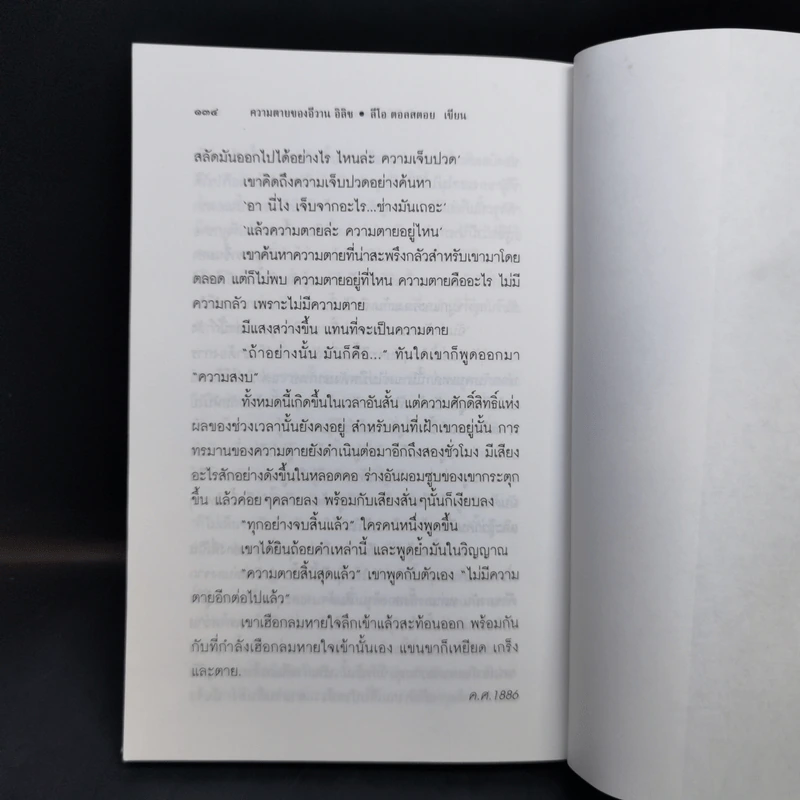 ๑๓๔ ความตายของอีวาน อิลิช • ลีโอ ตอลสตอย เขียน
สลัดมันออกไปได้อย่างไร ไหนล่ะ ความเจ็บปวด’
เขาคิดถึงความเจ็บปวดอย่างค้นหา
‘อา นี่ไง เจ็บจากอะไร...ช่างมันเถอะ’
‘แล้วความตายล่ะ ความตายอยู่ไหน’
เขาค้นหาความตายที่น่าสะพรึงกลัวสำหรับเขามาโดย
ตลอด แต่ก็ไม่พบ ความตายอยู่ที่ไหน ความตายคืออะไร ไม่มี
ความกลัว เพราะไม่มีความตาย
มีแสงสว่างขึ้น แทนที่จะเป็นความตาย
“ถ้าอย่างนั้น มันก็คือ...” ทันใดเขาก็พูดออกมา
“ความสงบ”
ทั้งหมดนี้เกิดขึ้นในเวลาอันสั้น แต่ความศักดิ์สิทธิ์แห่ง
ผลของช่วงเวลานั้นยังคงอยู่ สำหรับคนที่เฝ้าเขาอยู่นั้น การ
ทรมานของความตายยังดำเนินต่อมาอีกถึงสองชั่วโมง มีเสียง
อะไรสักอย่างดังขึ้นในหลอดคอ ร่างอันผอมซูบของเขากระตุก
ขึ้น แล้วค่อยๆคลายลง พร้อมกับเสียงสั่นๆนั้นก็เงียบลง
“ทุกอย่างจบสิ้นแล้ว” ใครคนหนึ่งพูดขึ้น
เขาได้ยินถ้อยคำเหล่านี้ และพูดย้ำมันในวิญญาณ
“ความตายสิ้นสุดแล้ว” เขาพูดกับตัวเอง “ไม่มีความ
ตายอีกต่อไปแล้ว”
เขาเฮือกลมหายใจลึกเข้าแล้วสะท้อนออก พร้อมกัน
กับที่กำลังเฮือกลมหายใจเข้านั้นเอง แขนขาก็เหยียด เกร็ง
และตาย.
ค.ศ.1886